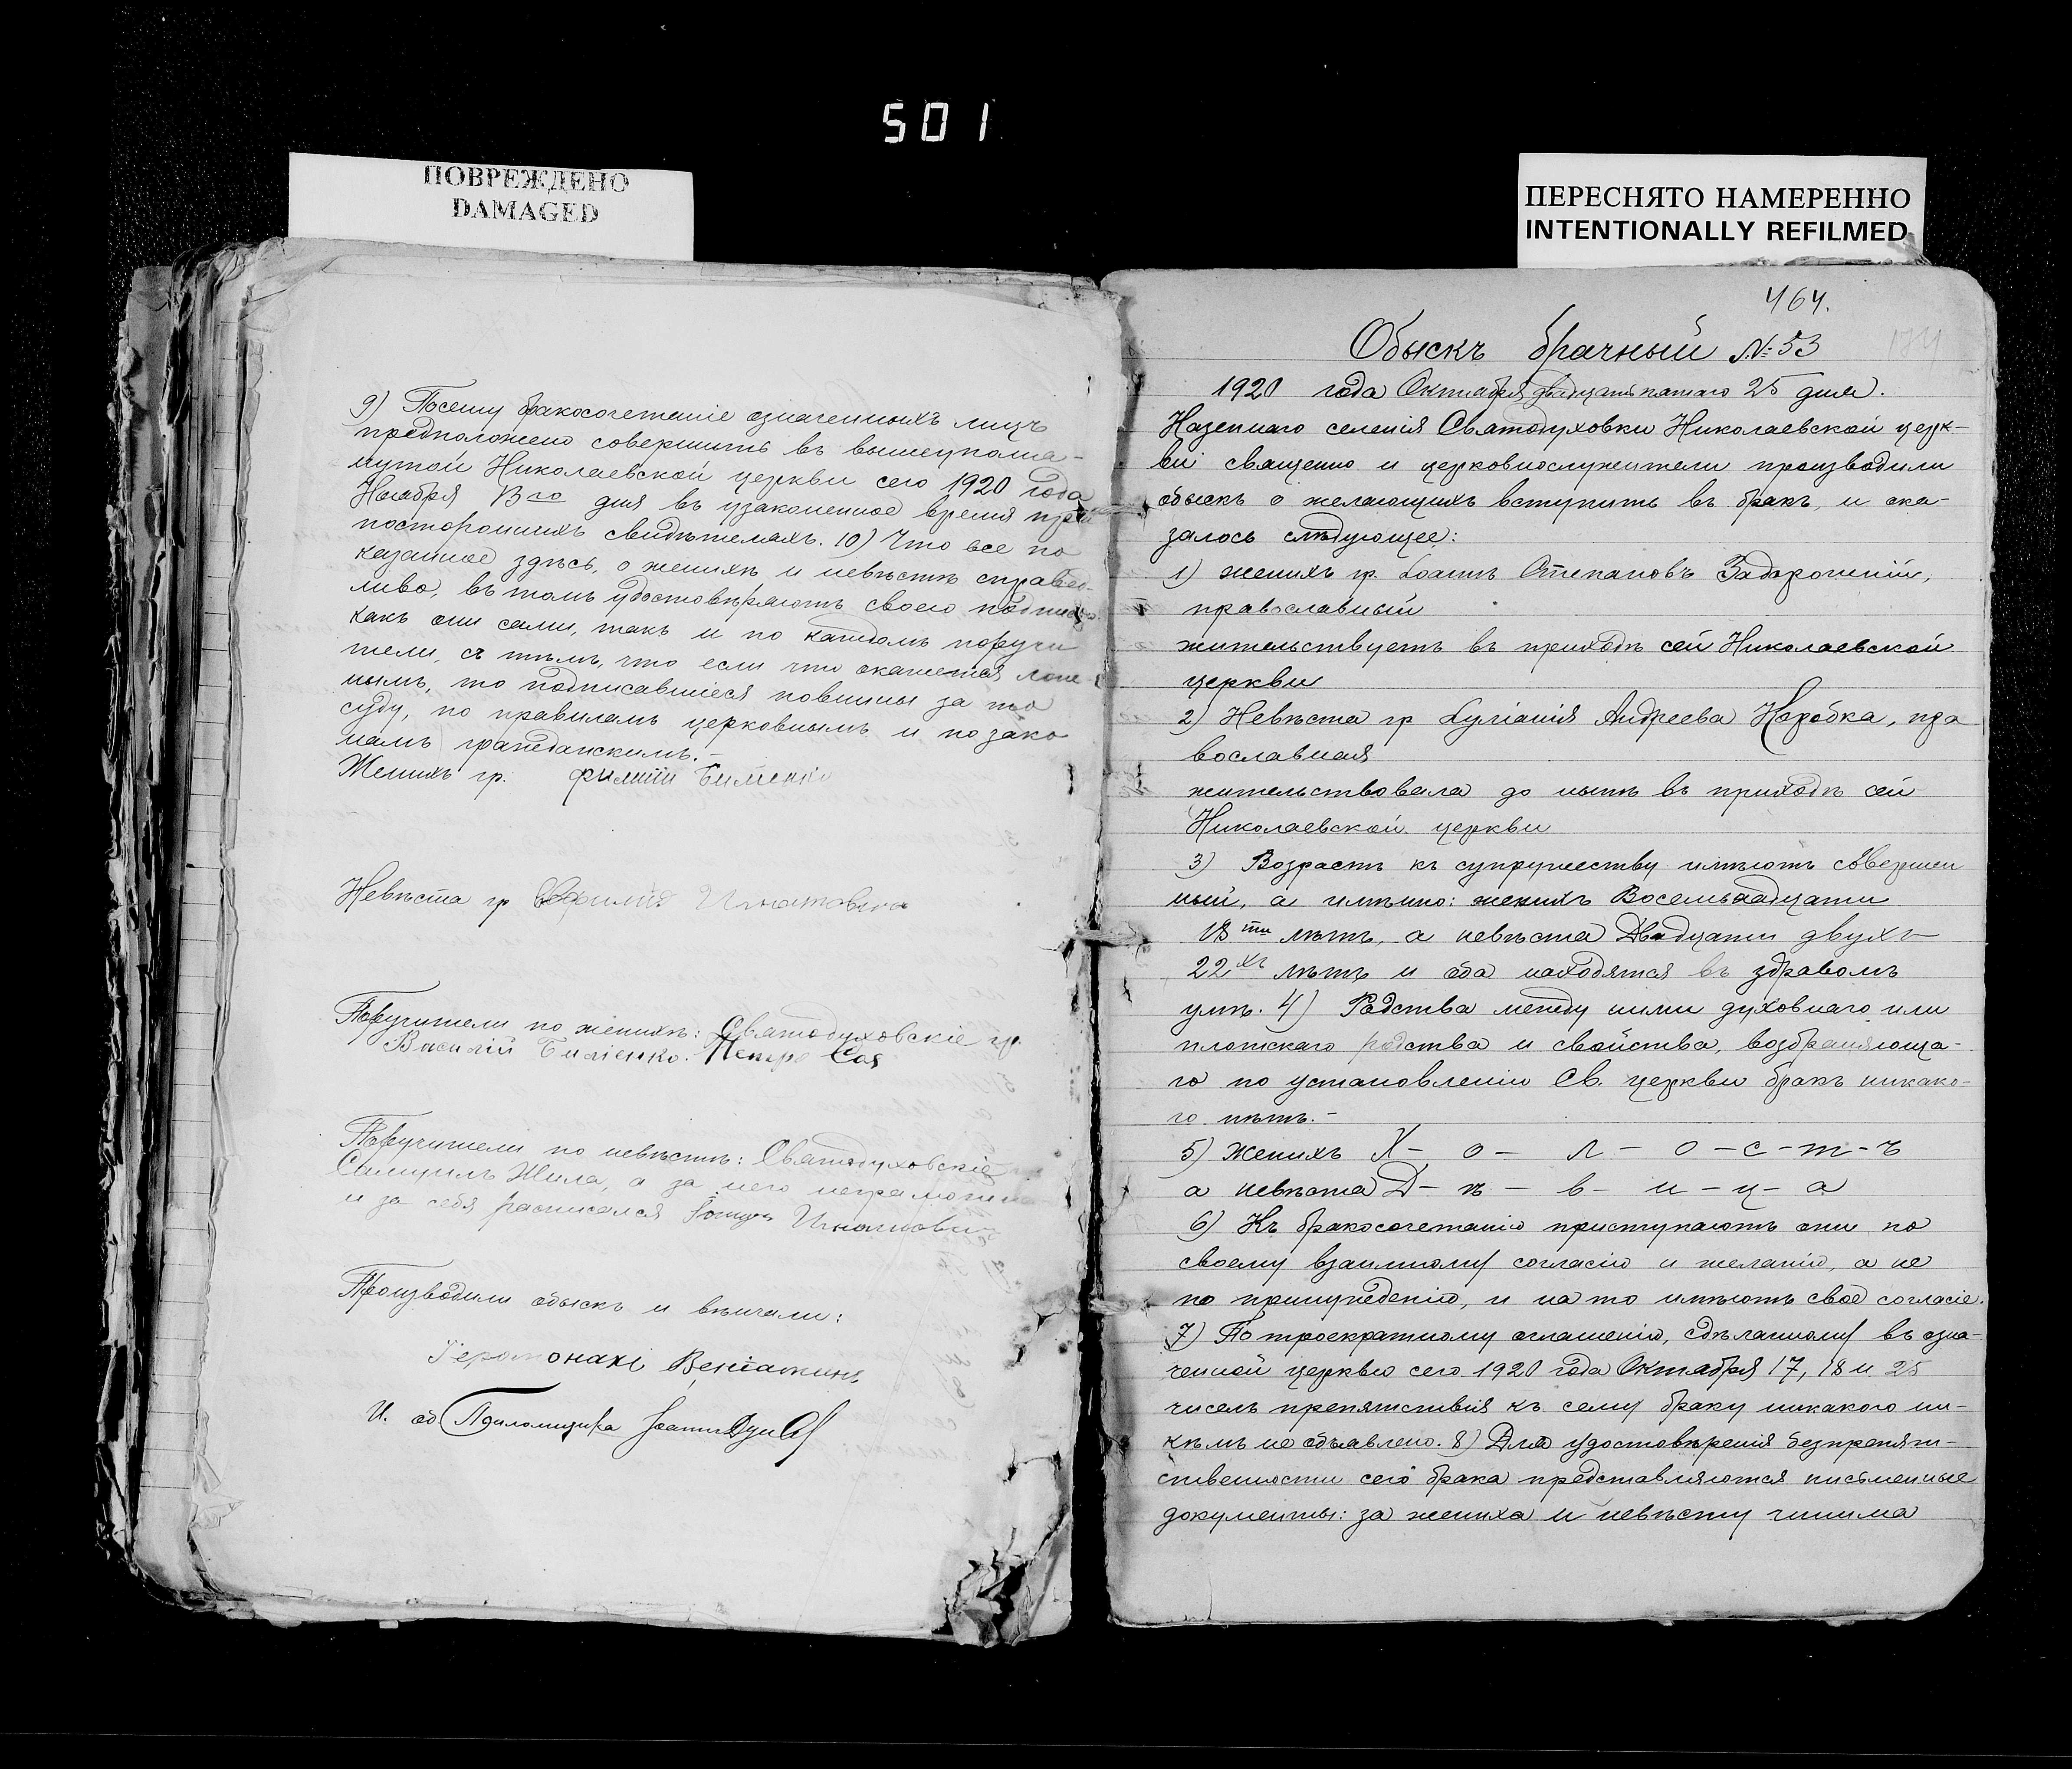 501
ПОВРЕЖДЕНО
DAMAGED
ПЕРЕСНЯТО НАМЕРЕННО
INTENTIONALLY REFILMED
9) Посему бракосочетаніе означенныхъ лицъ
предположено совершить въ вышеупомя-
нутой Николаевской церкви сего 1920 года
Ноября дня въ узаконенное время при
постороннихъ свидѣтеляхъ. 10) Что все по
казанное здѣсь, о женихѣ и невѣстѣ справед-
ливо, въ томъ удостовѣряютъ своею подписью
какъ они сами, такъ и по каждомъ поручи
тели, съ тѣмъ, что если что окажется лож
нымъ, то подписавшіеся повинны за то
суду, по правиламъ церковнымъ и по зако
намъ гражданскимъ.-
Женихъ гр. Филипп
Невѣста гр Игнатовна
Поручители по женихѣ: Святодуховскіе гр.
Василій Петро
Поручители по невѣстѣ: Святодуховскіе
Самуилъ Жила, а за него неграмотна
и за себя расписался
Производили обыскъ и вѣнчали:
Іеромонахъ Веніаминъ
И. об Псаломщика Іоаннъ
464.
174
Обыскъ брачный №: 53
1920 года Октября двадцать пятаго 25 дня.
Казеннаго селенія Святодуховки Николаевской церк-
ви священно и церковнослужители производили
обыскъ о желающихъ вступить въ бракъ, и ока-
залось слѣдующее:
1) женихъ гр. Іоаннъ Степановъ Задорожній,
православный
жительствуетъ въ приходѣ сей Николаевской
церкви
2) Невѣста гр Андреева Коробка, пра
вославная
жительствовала до нынѣ въ приходѣ сей
Николаевской церкви
3) Возрастъ къ супружеству имѣютъ совершен
ный, а имѣнно: женихъ Восемьнадцати
18 ти лѣтъ, а невѣста Двадцати двухъ
22 хъ лѣтъ и оба находятся въ здравомъ
умѣ. 4) Родства между ними духовнаго или
плотскаго родства и свойства, возбраняюща-
го по установленію Св. церкви бракъ никако-
го нѣтъ.-
5) Женихъ Х- о- л- о-с-т-ъ
а невѣста Д- ѣ- в- и-ц-а
6) Къ бракосочетанію приступаютъ они по
своему взаимному согласію и желанію, а не
по принужденію, и на то имѣютъ своё согласіе.
7) По троекратному оглашенію, сдѣланному въ озна-
ченной церквью сего 1920 года Октября 17, 18 и 25
числъ препятствія къ сему браку никакого ни-
кѣмъ не объявлено. 8) Для удостовѣренія безпрепят-
ственности сего брака представляются письменные
документы: за жениха и невѣсту